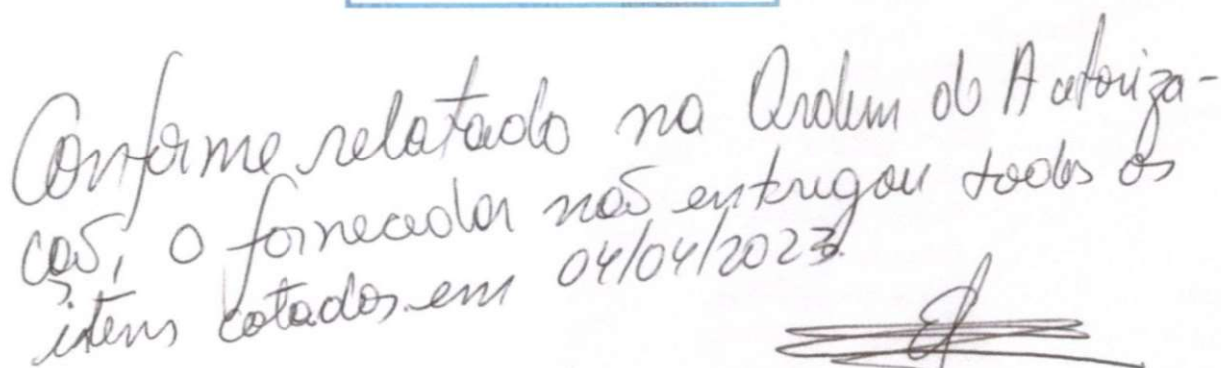 Conforme relatado na Ordem de Autoriza-
ção, o fornecedor não entregou todos os
itens cotados em 04/04/2023.